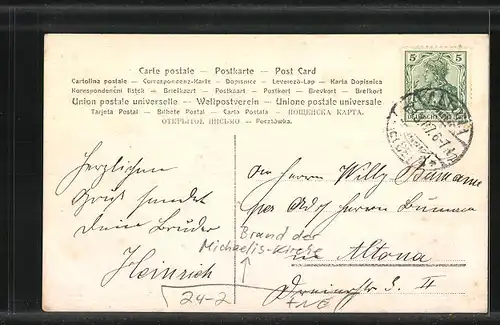 Carte postale — Postkarte — Post Card
Cartolina postale — Correspondenz-Karte — Dopisnice — Levelező-Lap — Karta Dopisnica
Korespondenční lístek — Briefkaart — Postkaart — Postkort — Brevkort — Brefkort
Union postale universelle — Weltpostverein — Unione postale universale
Tarjeta Postal — Bilhete Postal — Carta Postala — ПОЩЕНСКА КАРТА.
ОТКРЫТОЕ ПИСЬМО — Pocztówka.
5 5
Herzlichen
Gruß sendet
Deine Bruder
Heinrich
An Herrn Willy
per Adr Herrn
in Altona
II
Brand der
Michaelis-Kirche
24-2